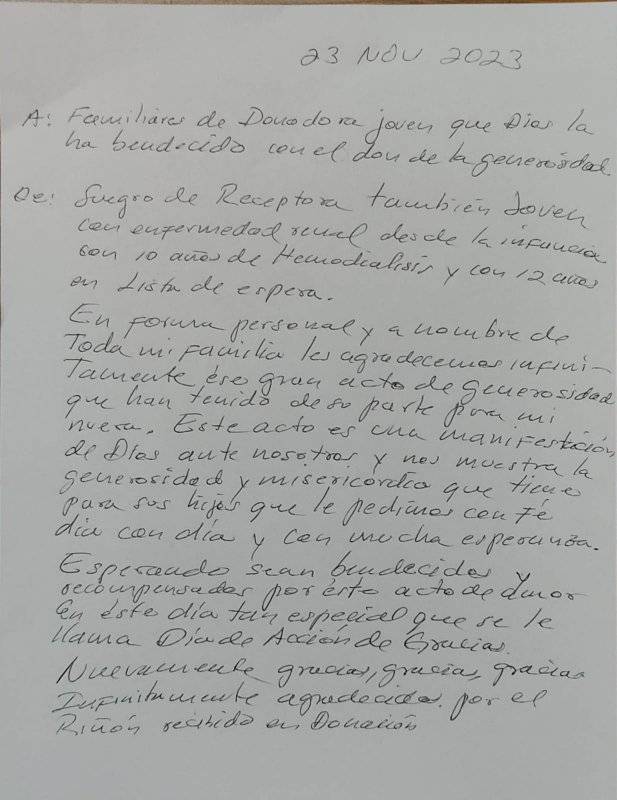 23 NOV 2023
A: Familiares de Donadora joven que Dios la
ha bendecido con el don de la generosidad.
De: Suegro de Receptora también Joven
con enfermedad renal desde la infancia
con 10 años de Hemodialisis y con 12 años
en Lista de espera.
En forma personal y a nombre de
Toda mi familia les agradecemos infini-
Tamente ése gran acto de generosidad
que han tenido de su parte para mi
nuera. Este acto es una manifestación
de Dios ante nosotros y nos muestra la
generosidad y misericordia que tiene
para sus hijos que le pedimos con Fé
dia con día y con mucha esperanza.
Esperando sean bendecidos y
recompensados por ésto acto de amor
en éste día tan especial que se le
llama Dia de Acción de Gracias.
Nuevamente gracias, gracias, gracias
Infinitamente agradecidos. por el
Riñón recibido en Donación